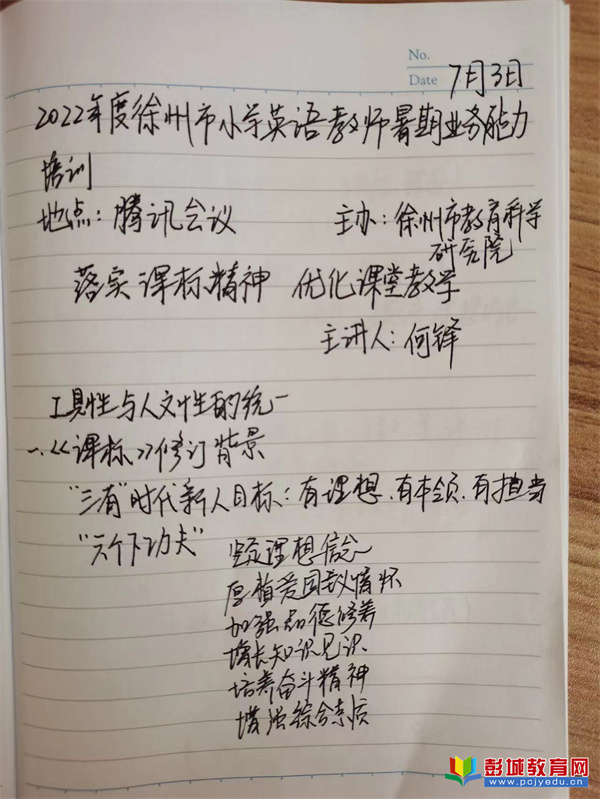 No.
Date 7月3日
2022年度徐州市小学英语教师暑期业务能力
培训
地点：腾讯会议 主办：徐州市教育科学
研究院
落实课标精神 优化课堂教学
主讲人：何铎
工具性与人文性的统一
一、《课标》修订背景
"三有"时代新人目标：有理想、有本领、有担当
"六个下功夫" 坚定理想信念
厚植爱国主义情怀
加强品德修养
增长知识见识
培养奋斗精神
增强综合素质
彭城教育网
www.pcjyedu.cn